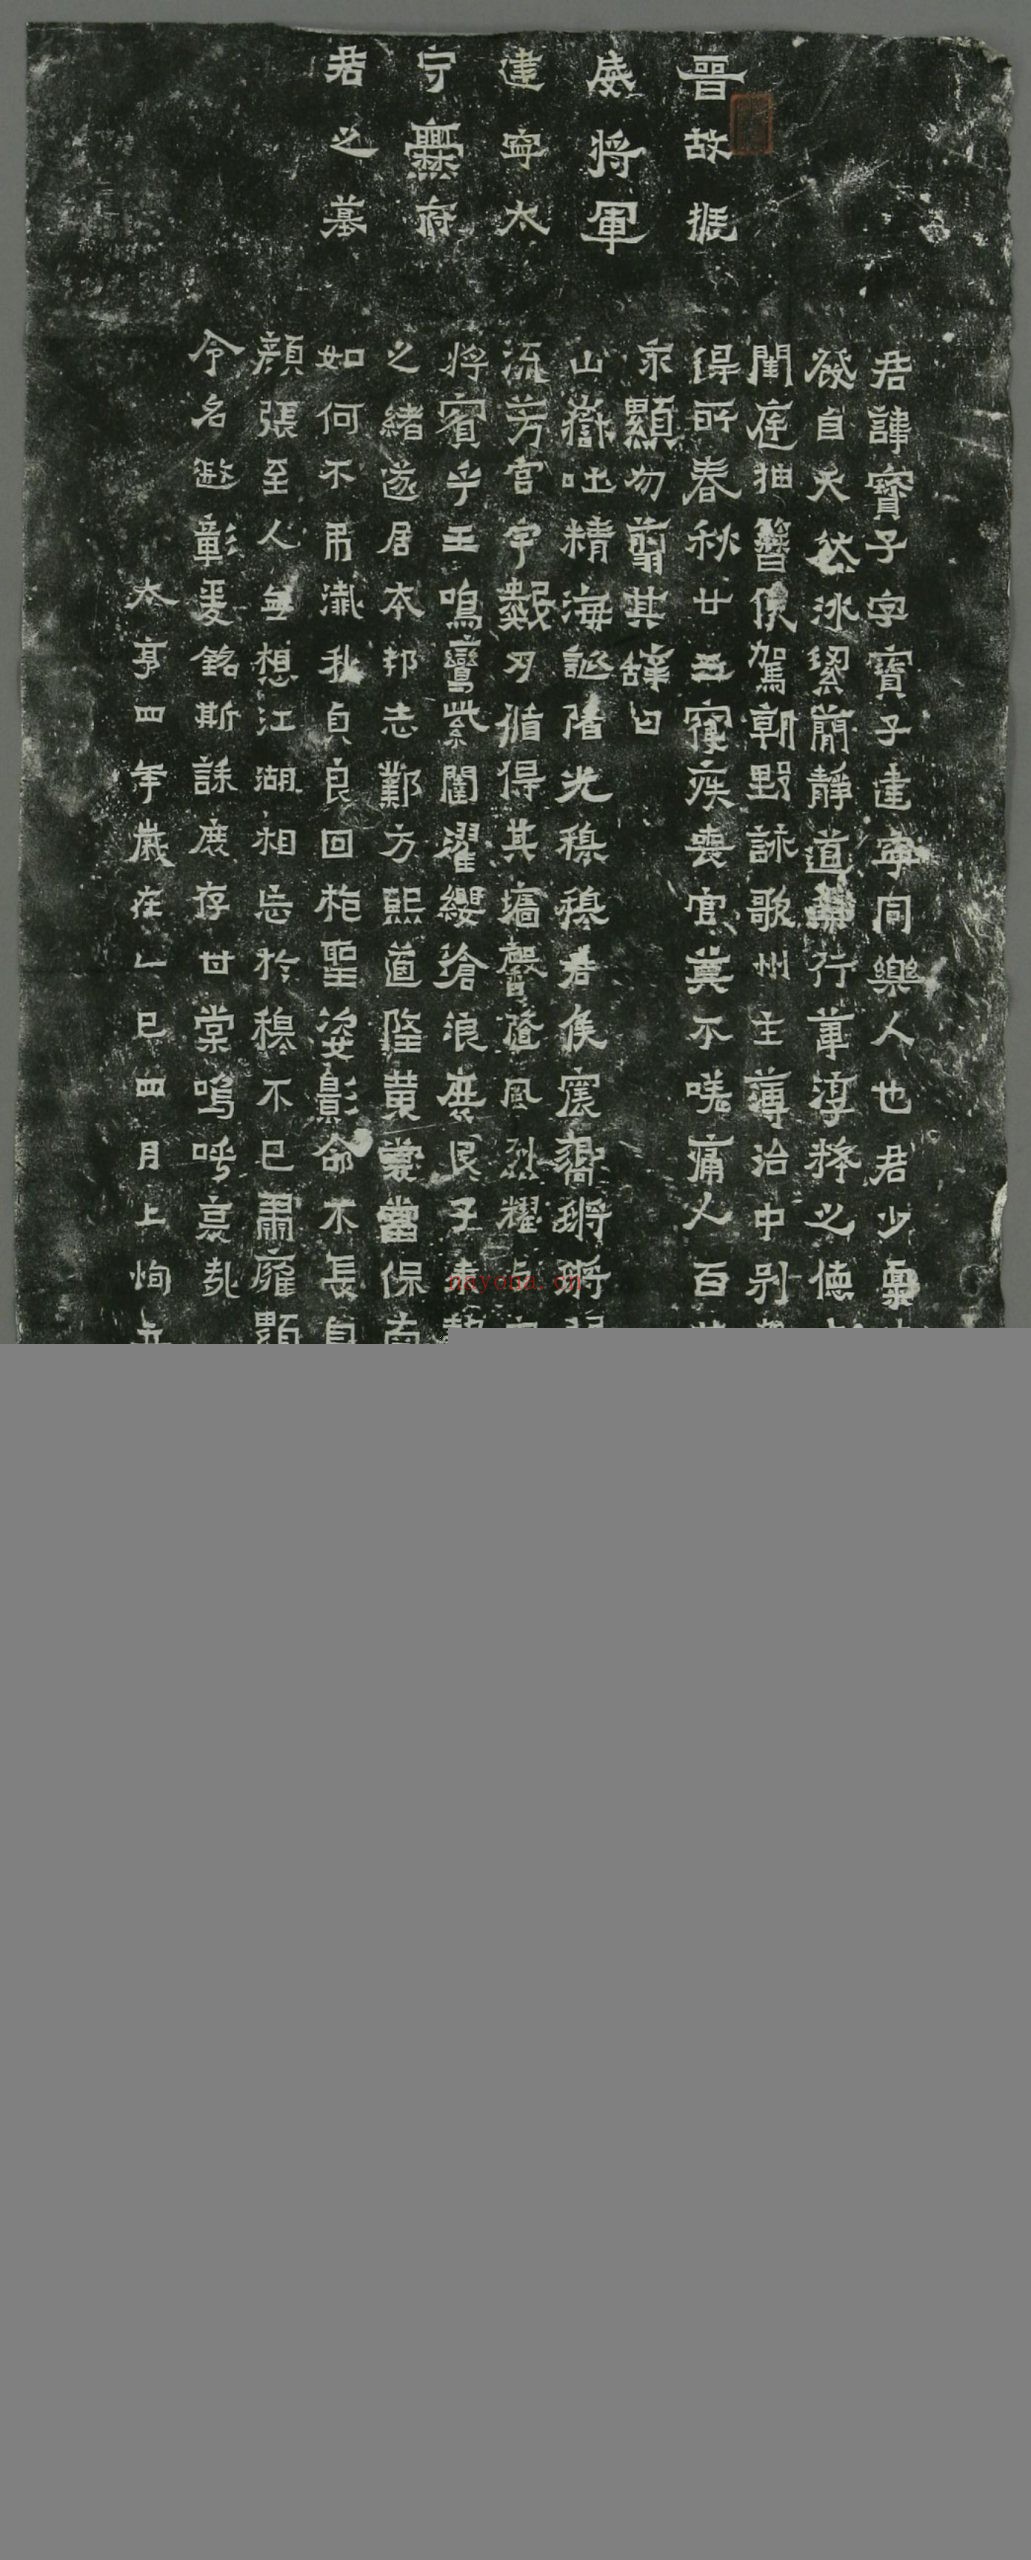 晉故振
威將軍
建寧太
守爨府
君之墓
君諱寶子字寶子建寧同樂人也君少稟
發自天然冰絜簡靜道兼行葦淳粹之德
閨庭抽簪俟駕朝野詠歌州主薄治中别
得所春秋廿五寑疾喪官莫不嗟痛人百
永顯勿翦其辭曰
山嶽吐精海誕陼光穆穆君侯震響鏘鏘
流芳宮宇數刃循得其墻馨隆風烈耀与
將賓乎王鳴鸞紫闥濯纓滄浪庶民子來
之緒遂居本邦志鄴方熙道隆黄裳當保南
如何不弔殲我貞良回枹聖姿影命不長自
顏張至人無想江湖相忘於穆不已肅雍顯
令名遐彰爰銘斯誄庶存甘棠嗚呼哀哉
太亨四年歲在乙巳四月上恂立